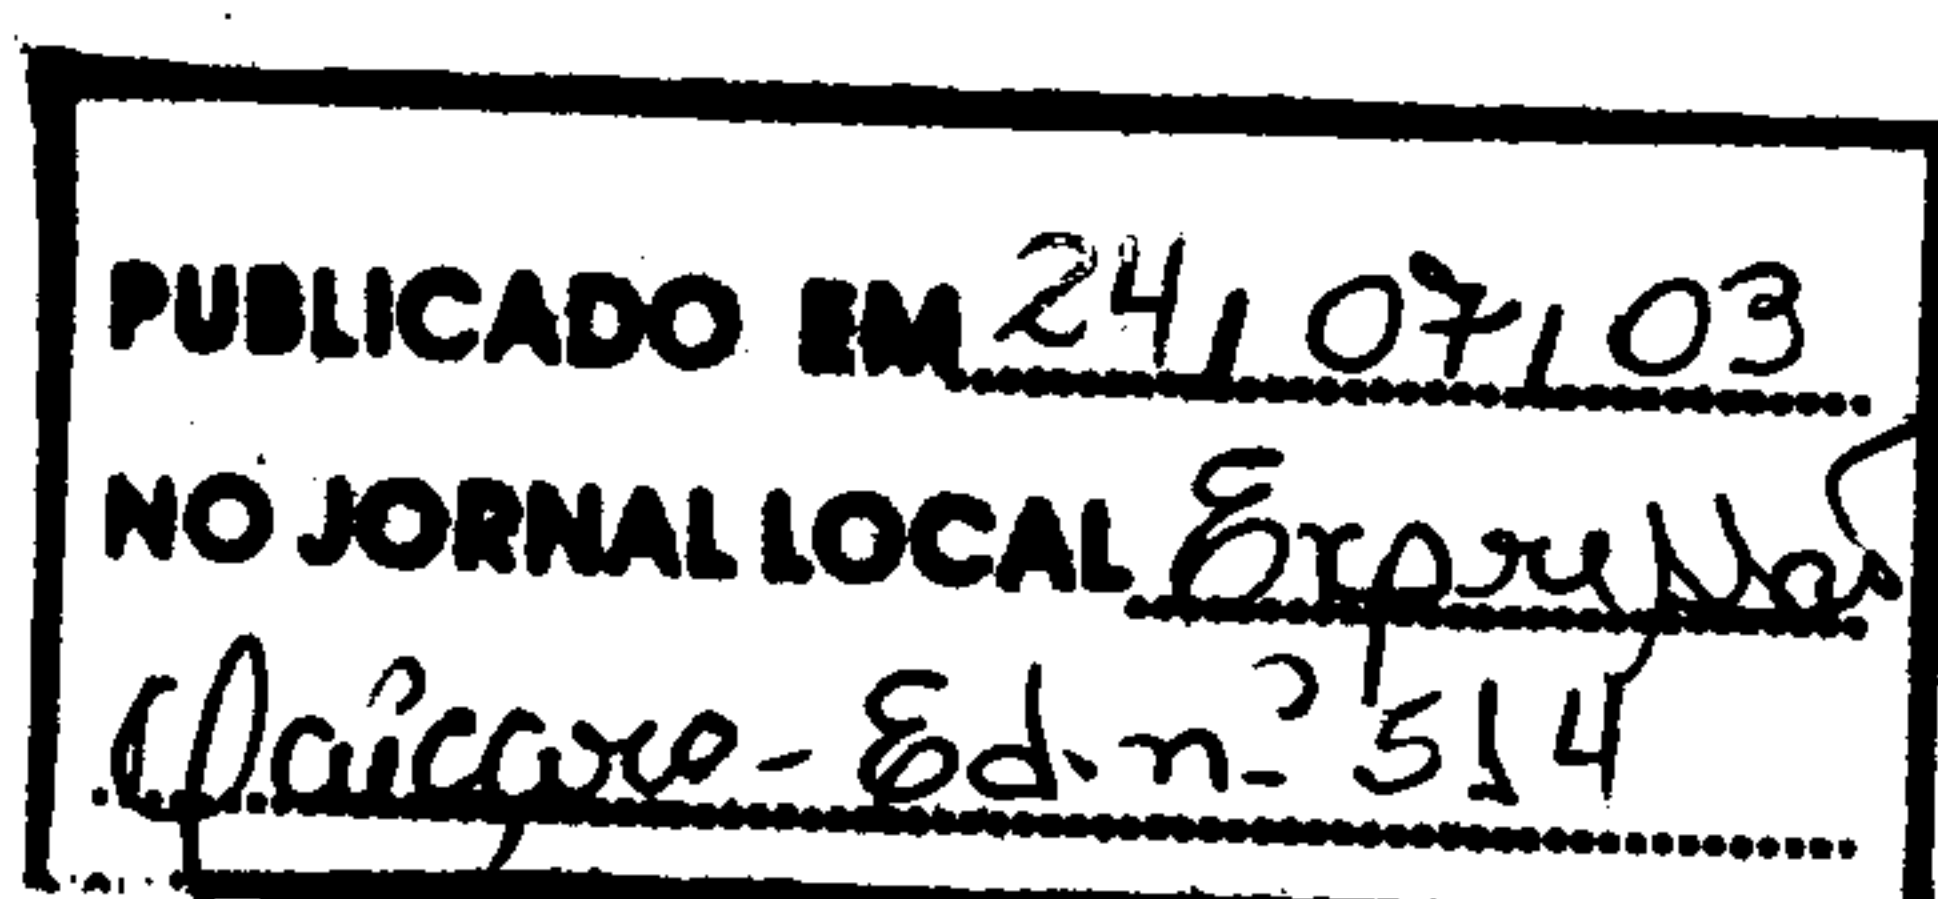 PUBLICADO EM 24/07/03
NO JORNAL LOCAL Expressão
Caiçara - Ed. nº 514